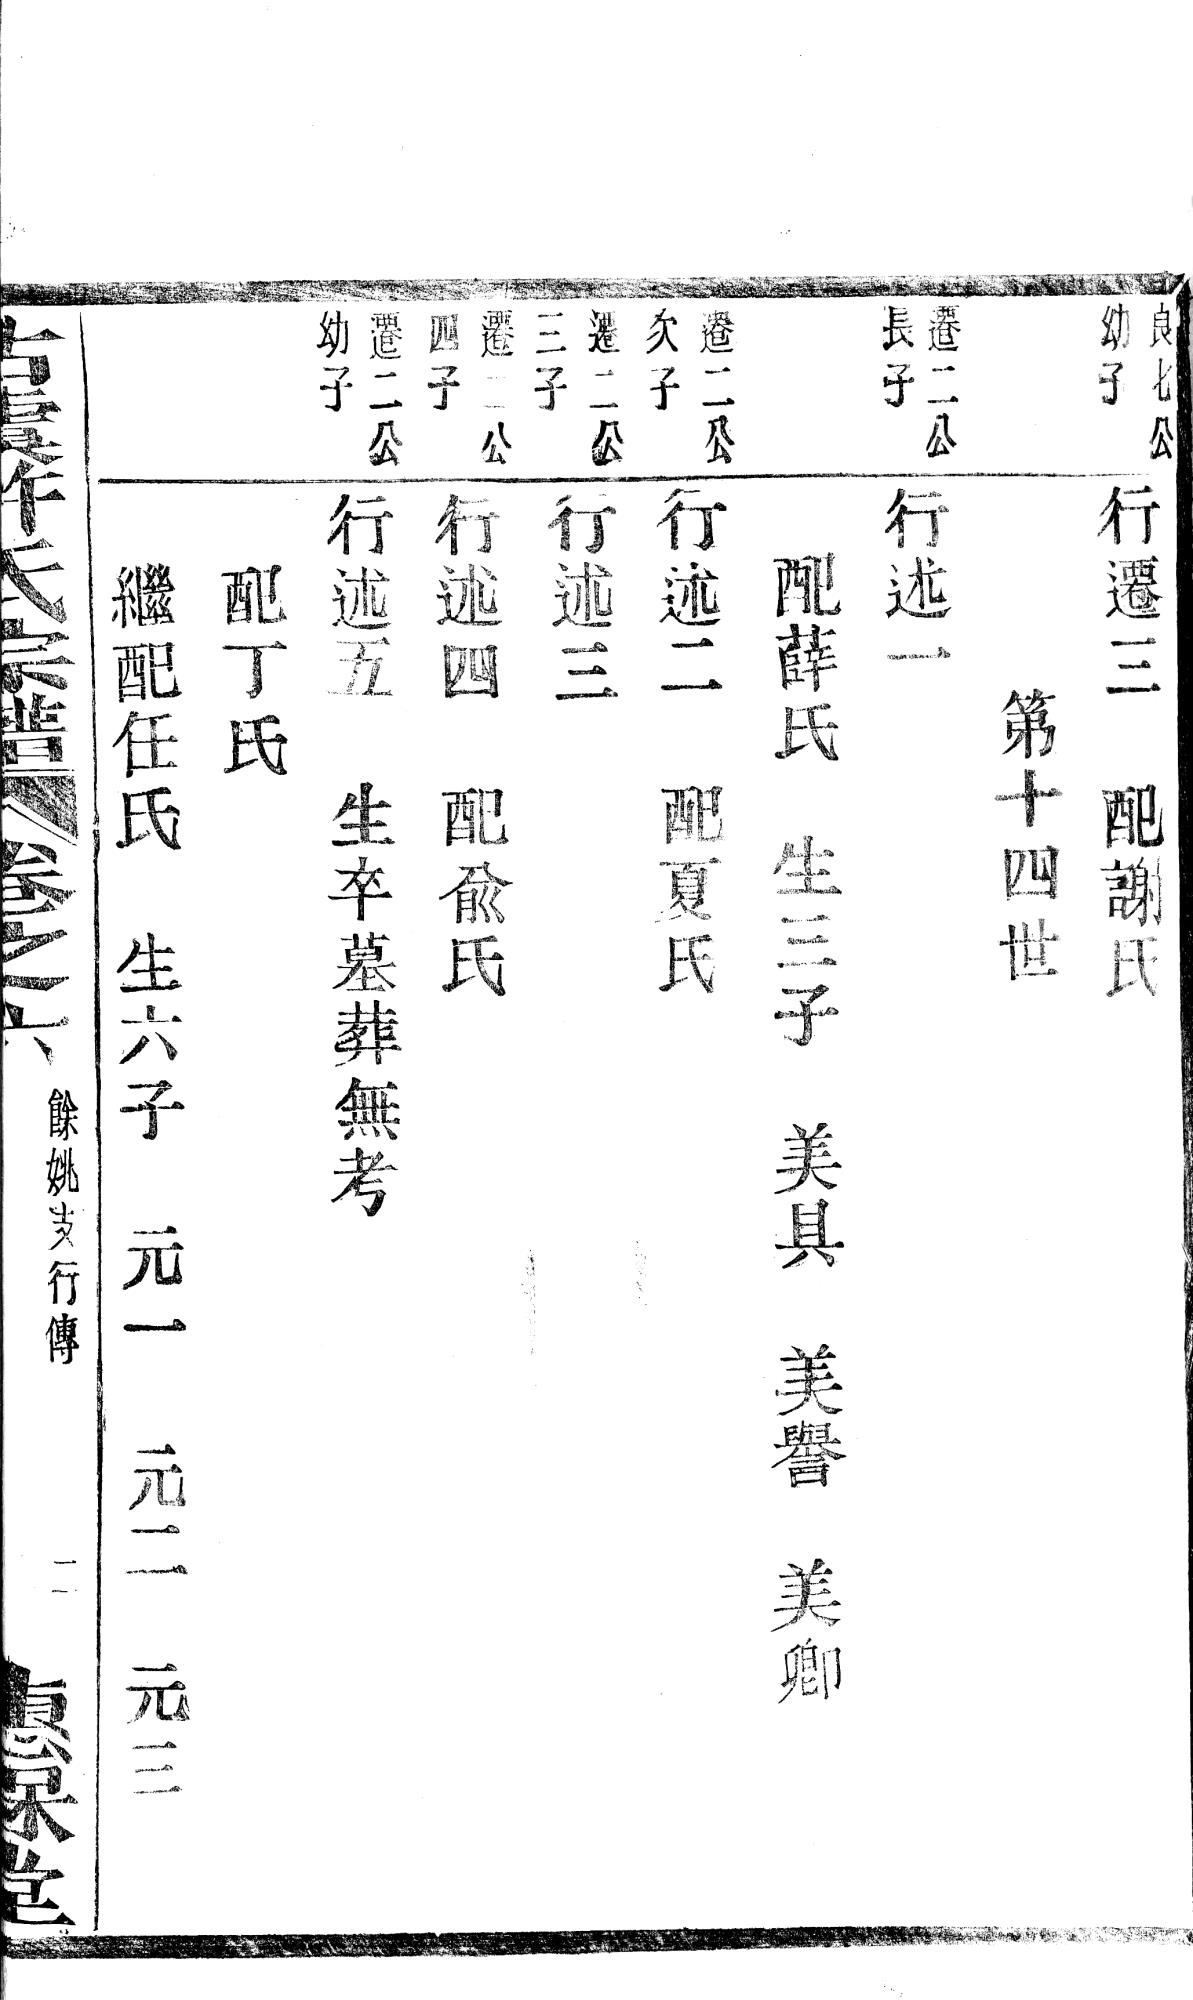 良七公
幼子
行遷三　配謝氏
第十四世
遷二公
長子
行述一
配薛氏　生三子　美具　美譽　美卿
遷二公
次子
行述二　配夏氏
遷二公
三子
行述三
遷二公
四子
行述四　配俞氏
遷二公
幼子
行述五　生卒墓葬無考
配丁氏
繼配任氏　生六子　元一　元二　元三
古虞許氏宗譜　卷之六　餘姚支行傳　二
堂